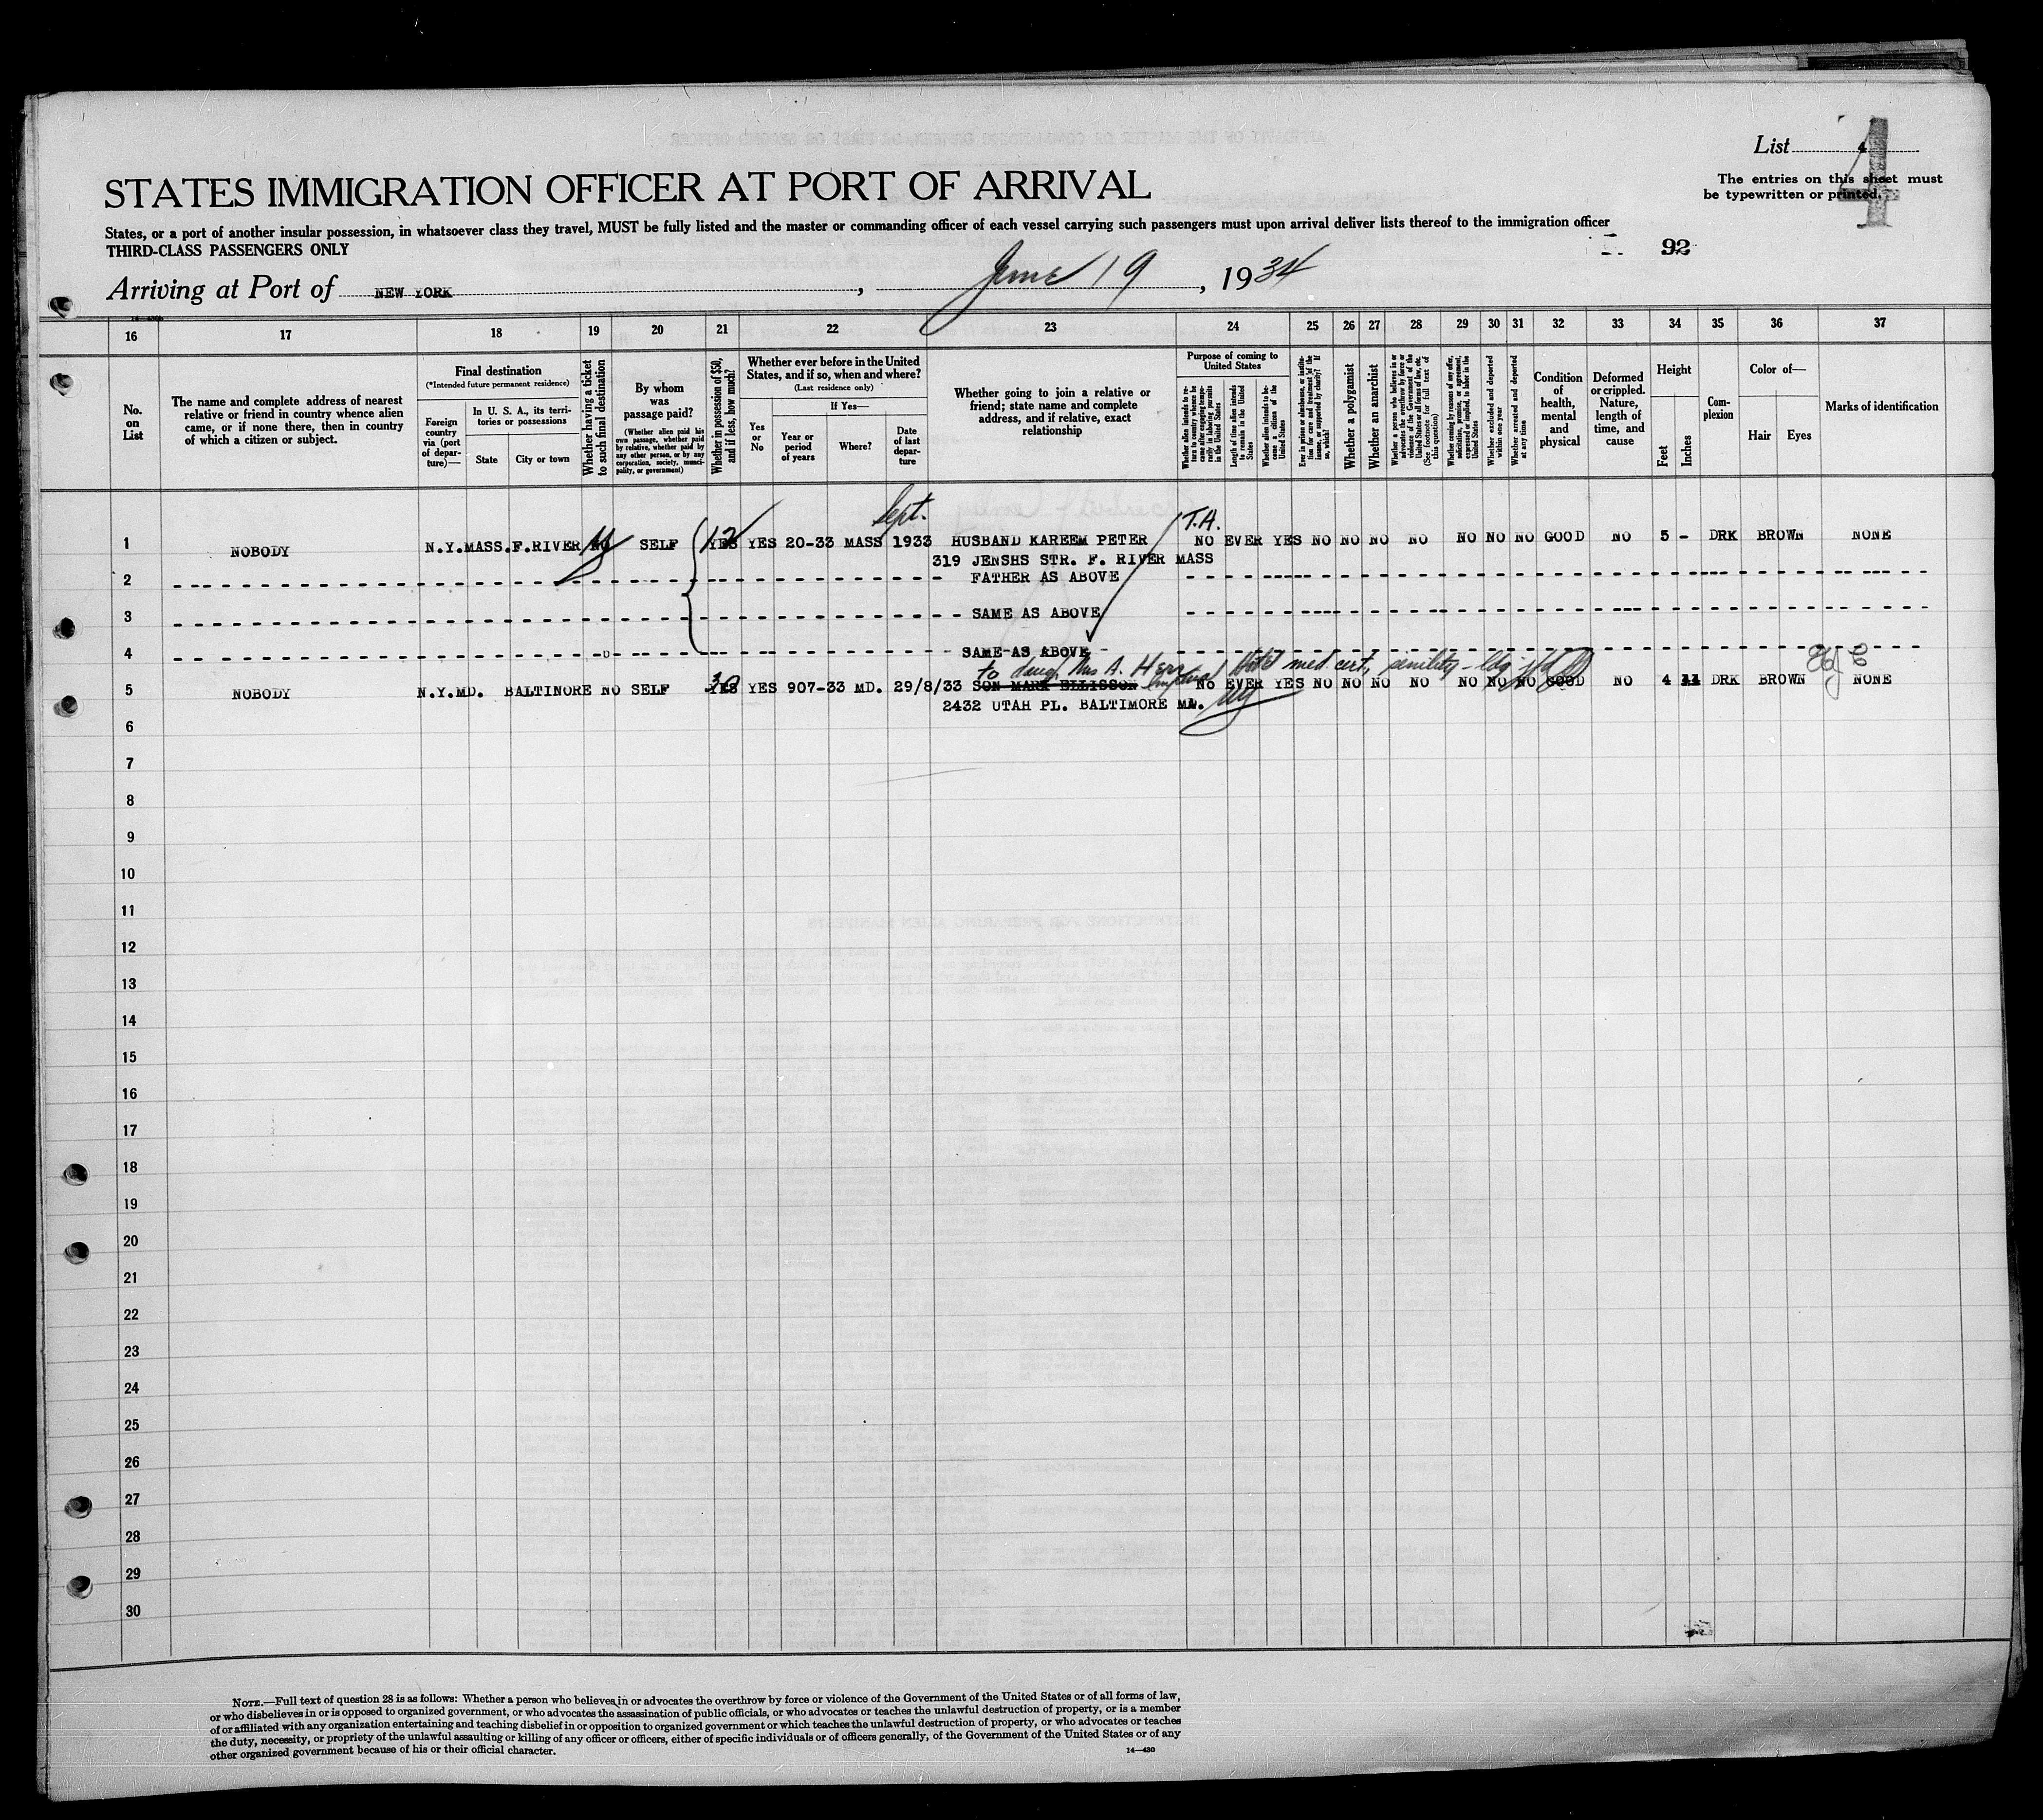 List 4
4
The entries on this sheet must
be typewritten or printed.
STATES IMMIGRATION OFFICER AT PORT OF ARRIVAL
States, or a port of another insular possession, in whatsoever class they travel, MUST be fully listed and the master or commanding officer of each vessel carrying such passengers must upon arrival deliver lists thereof to the immigration officer
THIRD-CLASS PASSENGERS ONLY
92
Arriving at Port of NEW YORK, June 19, 1934
16 17 18 19 20 21 22 23 24 25 26 27 28 29 30 31 32 33 34 35 36 37
No. on List
The name and complete address of nearest relative or friend in country whence alien came, or if none there, then in country of which a citizen or subject.
Final destination
(*Intended future permanent residence)
Foreign country via (port of departure)—
In U. S. A., its territories or possessions
State
City or town
Whether having a ticket to such final destination
By whom was passage paid?
(Whether alien paid his own passage, whether paid by relative, whether paid by any other person, or by any corporation, society, municipality, or government)
Whether in possession of $50, and if less, how much?
Whether ever before in the United States, and if so, when and where?
(Last residence only)
Yes or No
If Yes—
Year or period of years
Where?
Date of last departure
Whether going to join a relative or friend; state name and complete address, and if relative, exact relationship
Purpose of coming to United States
Whether alien intends to return to country whence he came after engaging temporarily in laboring pursuits in the United States
Length of time alien intends to remain in the United States
Whether alien intends to become a citizen of the United States
Ever in prison or almshouse, or institution for care and treatment of the insane, or supported by charity? If so, which?
Whether a polygamist
Whether an anarchist
Whether a person who believes in or advocates the overthrow by force or violence of the Government of the United States or all forms of law, etc. (See footnote for full text of this question)
Whether coming by reasons of any offer, solicitation, promise, or agreement, expressed or implied, to labor in the United States
Whether excluded and deported within one year
Whether arrested and deported at any time
Condition of health, mental and physical
Deformed or crippled. Nature, length of time, and cause
Height
Feet
Inches
Complexion
Color of—
Hair
Eyes
Marks of identification
Sept. T.A.
1 NOBODY N.Y. MASS. F.RIVER NO SELF YES 12 YES 20-33 MASS 1933 HUSBAND KAREEM PETER NO EVER YES NO NO NO NO NO NO NO GOOD NO 5 - DRK BROWN NONE
319 JENSHS STR. F. RIVER MASS
2 FATHER AS ABOVE
3 SAME AS ABOVE
4 SAME-AS ABOVE
to daug Mrs A. med cert, senility
5 NOBODY N.Y. MD. BALTIMORE NO SELF YES 30 YES 907-33 MD. 29/8/33 SON MARK ELLISSON NO EVER YES NO NO NO NO NO NO NO GOOD NO 4 11 DRK BROWN NONE
2432 UTAH PL. BALTIMORE MD.
6
7
8
9
10
11
12
13
14
15
16
17
18
19
20
21
22
23
24
25
26
27
28
29
30
NOTE.—Full text of question 28 is as follows: Whether a person who believes in or advocates the overthrow by force or violence of the Government of the United States or of all forms of law,
or who disbelieves in or is opposed to organized government, or who advocates the assassination of public officials, or who advocates or teaches the unlawful destruction of property, or is a member
of or affiliated with any organization entertaining and teaching disbelief in or opposition to organized government or which teaches the unlawful destruction of property, or who advocates or teaches
the duty, necessity, or propriety of the unlawful assaulting or killing of any officer or officers, either of specific individuals or of officers generally, of the Government of the United States or of any
other organized government because of his or their official character.
14—430